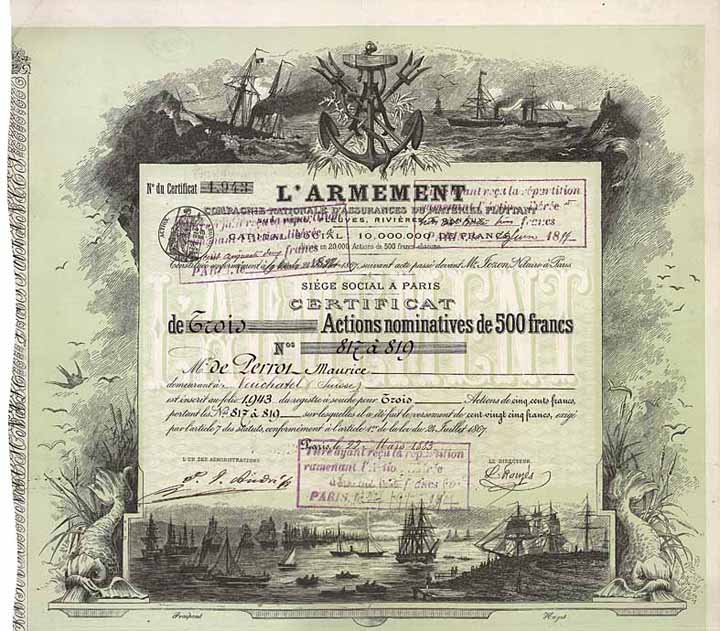 N° du Certificat 1.943
L'ARMEMENT
COMPAGNIE NATIONALE D'ASSURANCES DU MATÉRIEL FLOTTANT
SUR MERS, FLEUVES, RIVIÈRES
CAPITAL SOCIAL 10.000.000 DE FRANCS
en 20,000 Actions de 500 francs chacune
1867, suivant acte passé devant Me Jozon, Notaire à Paris
SIÈGE SOCIAL A PARIS
CERTIFICAT
de Trois Actions nominatives de 500 francs
Nos 817 à 819
Mr de Perrot Maurice
demeurant à Neuchatel (Suisse)
est inscrit au folio 1,943 du registre à souche pour Trois Actions de cinq cents francs,
portant les Nos 817 à 819 sur lesquelles il a été fait le versement de cent vingt cinq francs, exigé
par l'article 7 des Statuts, conformément à l'article 1er de la loi du 24 Juillet 1867.
Paris, le 22 Mars 1883
L'UN DES ADMINISTRATEURS
LE DIRECTEUR
Titre ayant reçu la répartition
ramenant
francs
PARIS
ayant reçu la répartition
ramenant
francs
PARIS
Titre ayant reçu la répartition
ramenant
PARIS
L'ARMEMENT